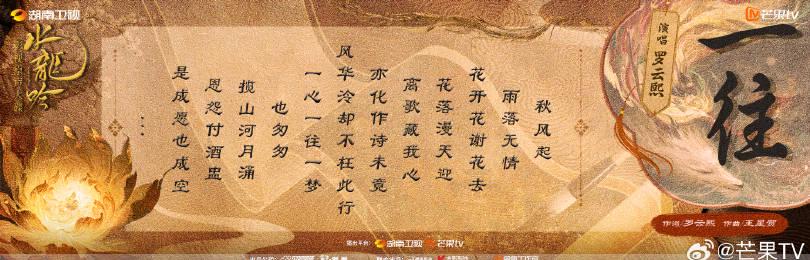 湖南卫视
芒果TV
水龙吟
一往
演唱 罗云熙
秋风起
雨落无情
花开花谢花去
花落漫天迎
离歌藏我心
亦化作诗未竟
风华冷却不枉此行
一心一往一梦
也匆匆
揽山河月涌
恩怨付酒盅
是成愿也成空
...
作词/罗云熙 作曲/王星贺
播出平台: 湖南卫视 芒果TV
@芒果TV